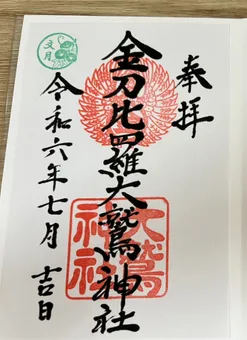 奉拝
金刀比羅大鷲神社
令和六年七月 吉日
文月
大鷲
神社